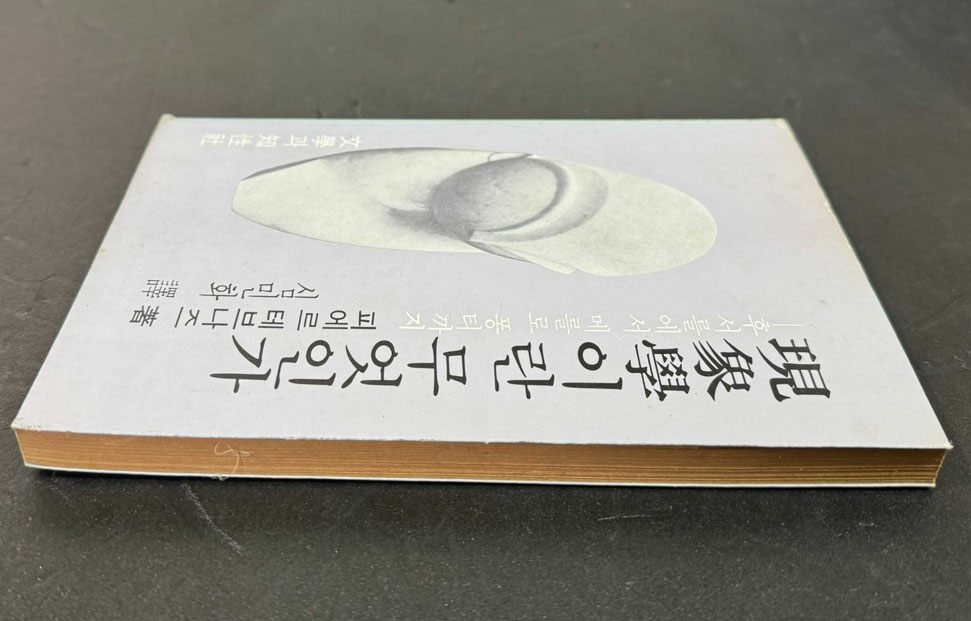 現象學이란 무엇인가
─후서를에서 메를로 퐁티까지
피에르 테브나즈 著
심민화 譯
文學과知性社